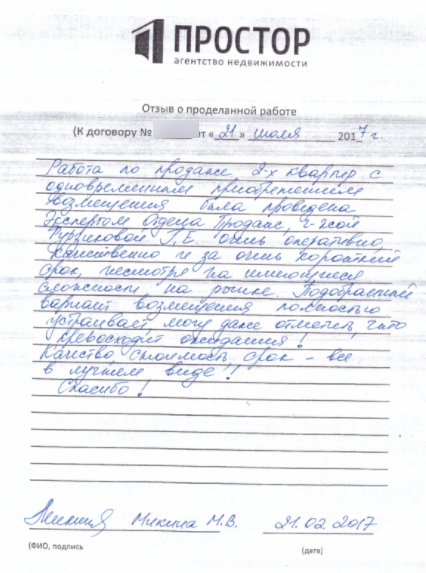 ПРОСТОР
агентство недвижимости
Отзыв о проделанной работе
(К договору № от « 21 » июля 2017 г.
Работа по продаже 2-х квартир с
одновременным приобретением
возмещения была проведена
Экспертом Отдела Продаж, г-жой
Г.Е. очень оперативно,
качественно и за очень короткий
срок, несмотря на имеющиеся
сложности на рынке. Подобранный
вариант возмещения полностью
устраивает, могу даже отметить, что
превосходит ожидания!
Качество, стоимость, срок – все
в лучшем виде!!
Спасибо!
Микина М.В. 21.02 2017
(ФИО, подпись (дата)